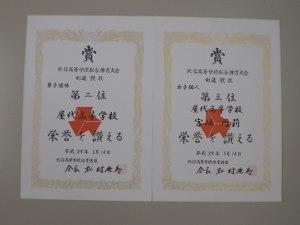 賞
北信高等学校総合体育大会
剣道 競技
男子団体
第二位
屋代高等学校
栄誉を讃える
平成29年 5月14日
北信高等学校体育連盟
会長
賞
北信高等学校総合体育大会
剣道 競技
女子個人
第三位
屋代高等学校
栄誉を讃える
平成29年 5月14日
北信高等学校体育連盟
会長